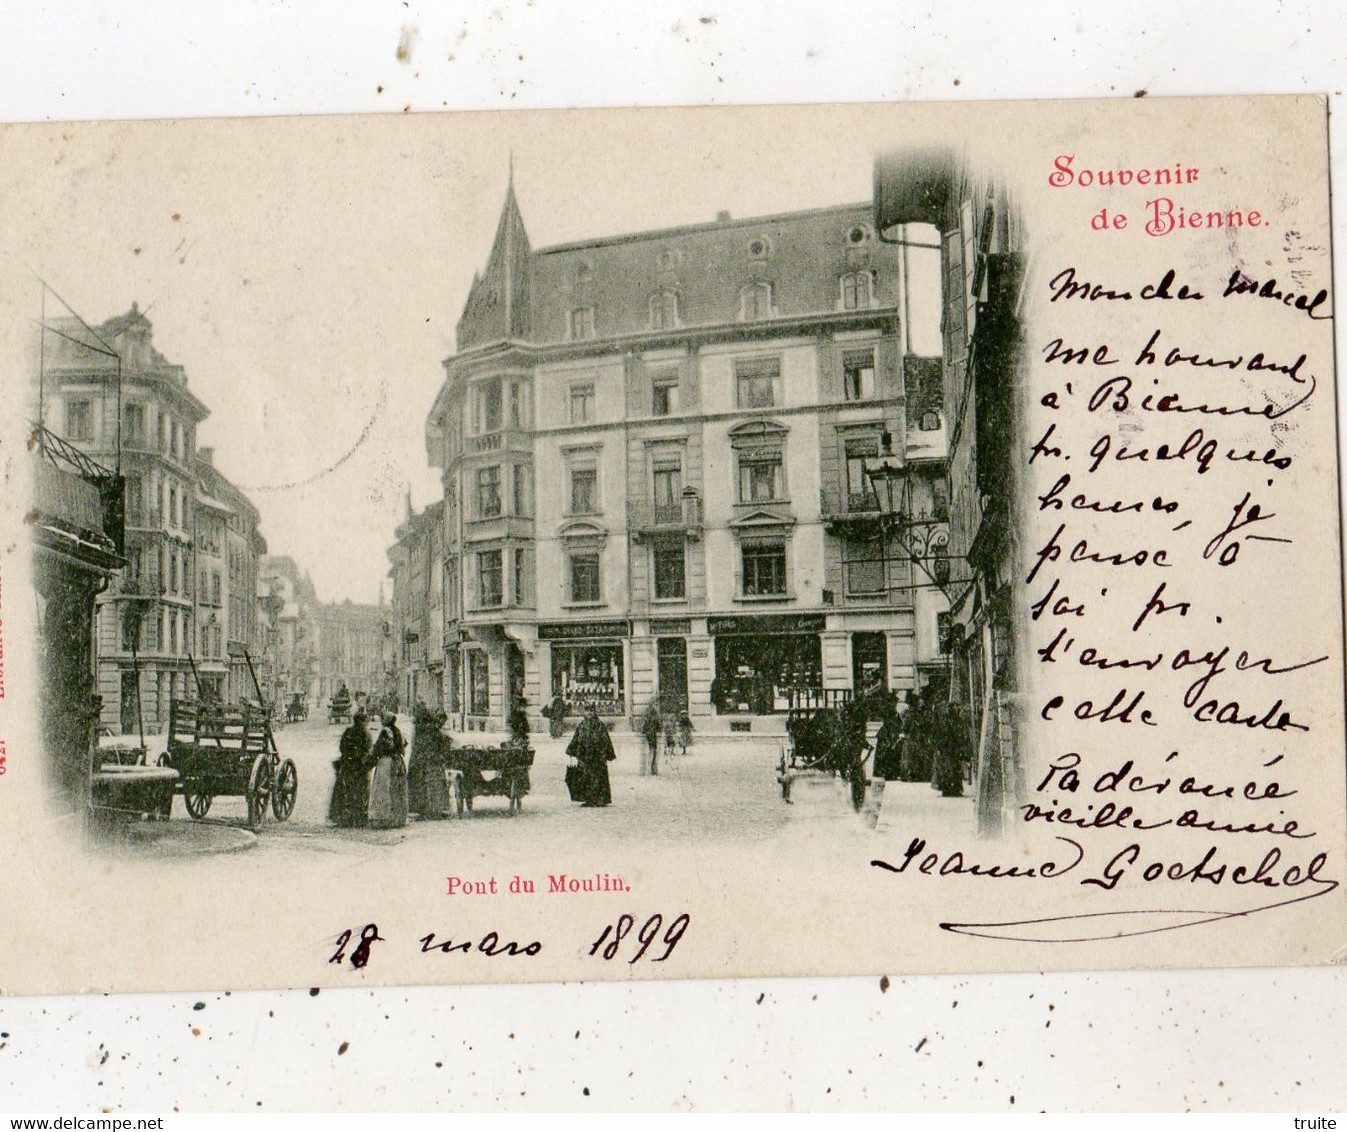 Souvenir
de Bienne.
Mon cher Marcel
me trouvant
à Bienne
pr. quelques
heures, je
pense à
toi pr.
t'envoyer
cette carte
Ta dévouée
vieille amie
Jeanne Goetschel
Pont du Moulin.
28 mars 1899
6427
www.delcampe.net
truite